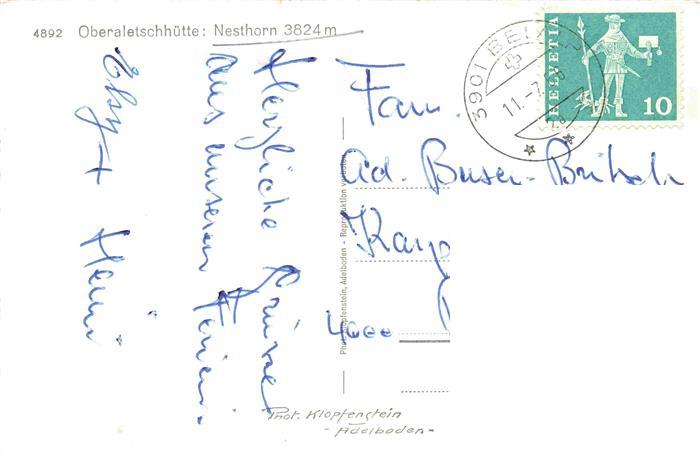 4892 Oberaletschhütte: Nesthorn 3824 m
Herzliche Grüsse
aus unseren Ferien.
Elsy +
Heini
Fam.
Ad. Buser-Britsch
4000
HELVETIA
10
3901 BELALP
11.-7.
Photo Klopfenstein, Adelboden - Reproduktion verboten
Phot. Klopfenstein
- Adelboden -